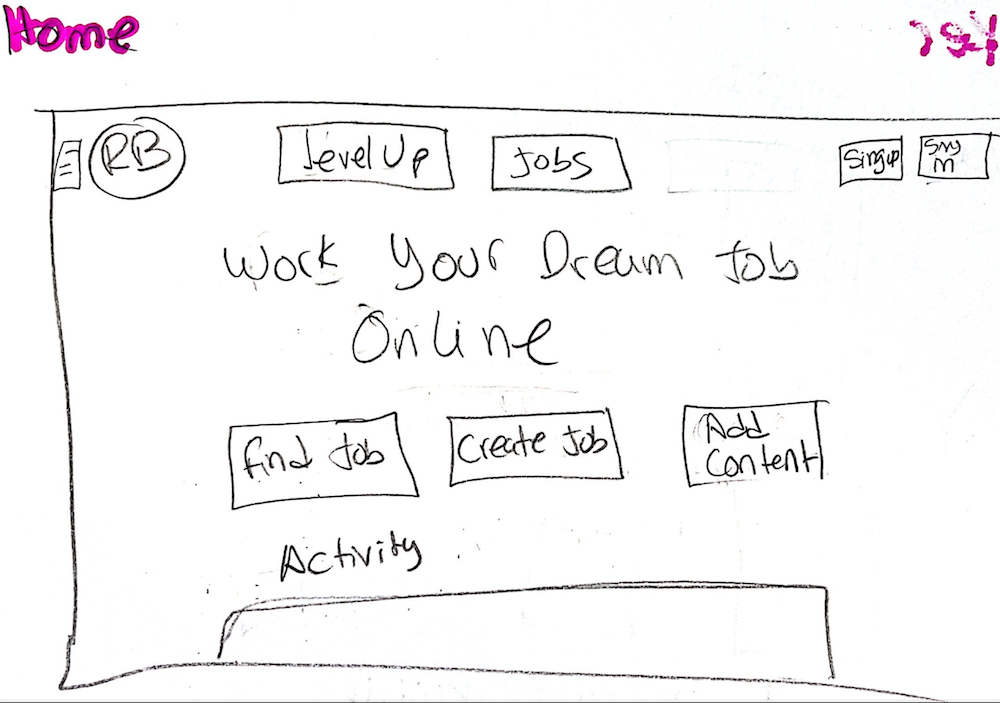 Home
RB
Level Up
Jobs
Singup
Work Your Dream Job
Online
Find Job
Create Job
Add
Content
Activity